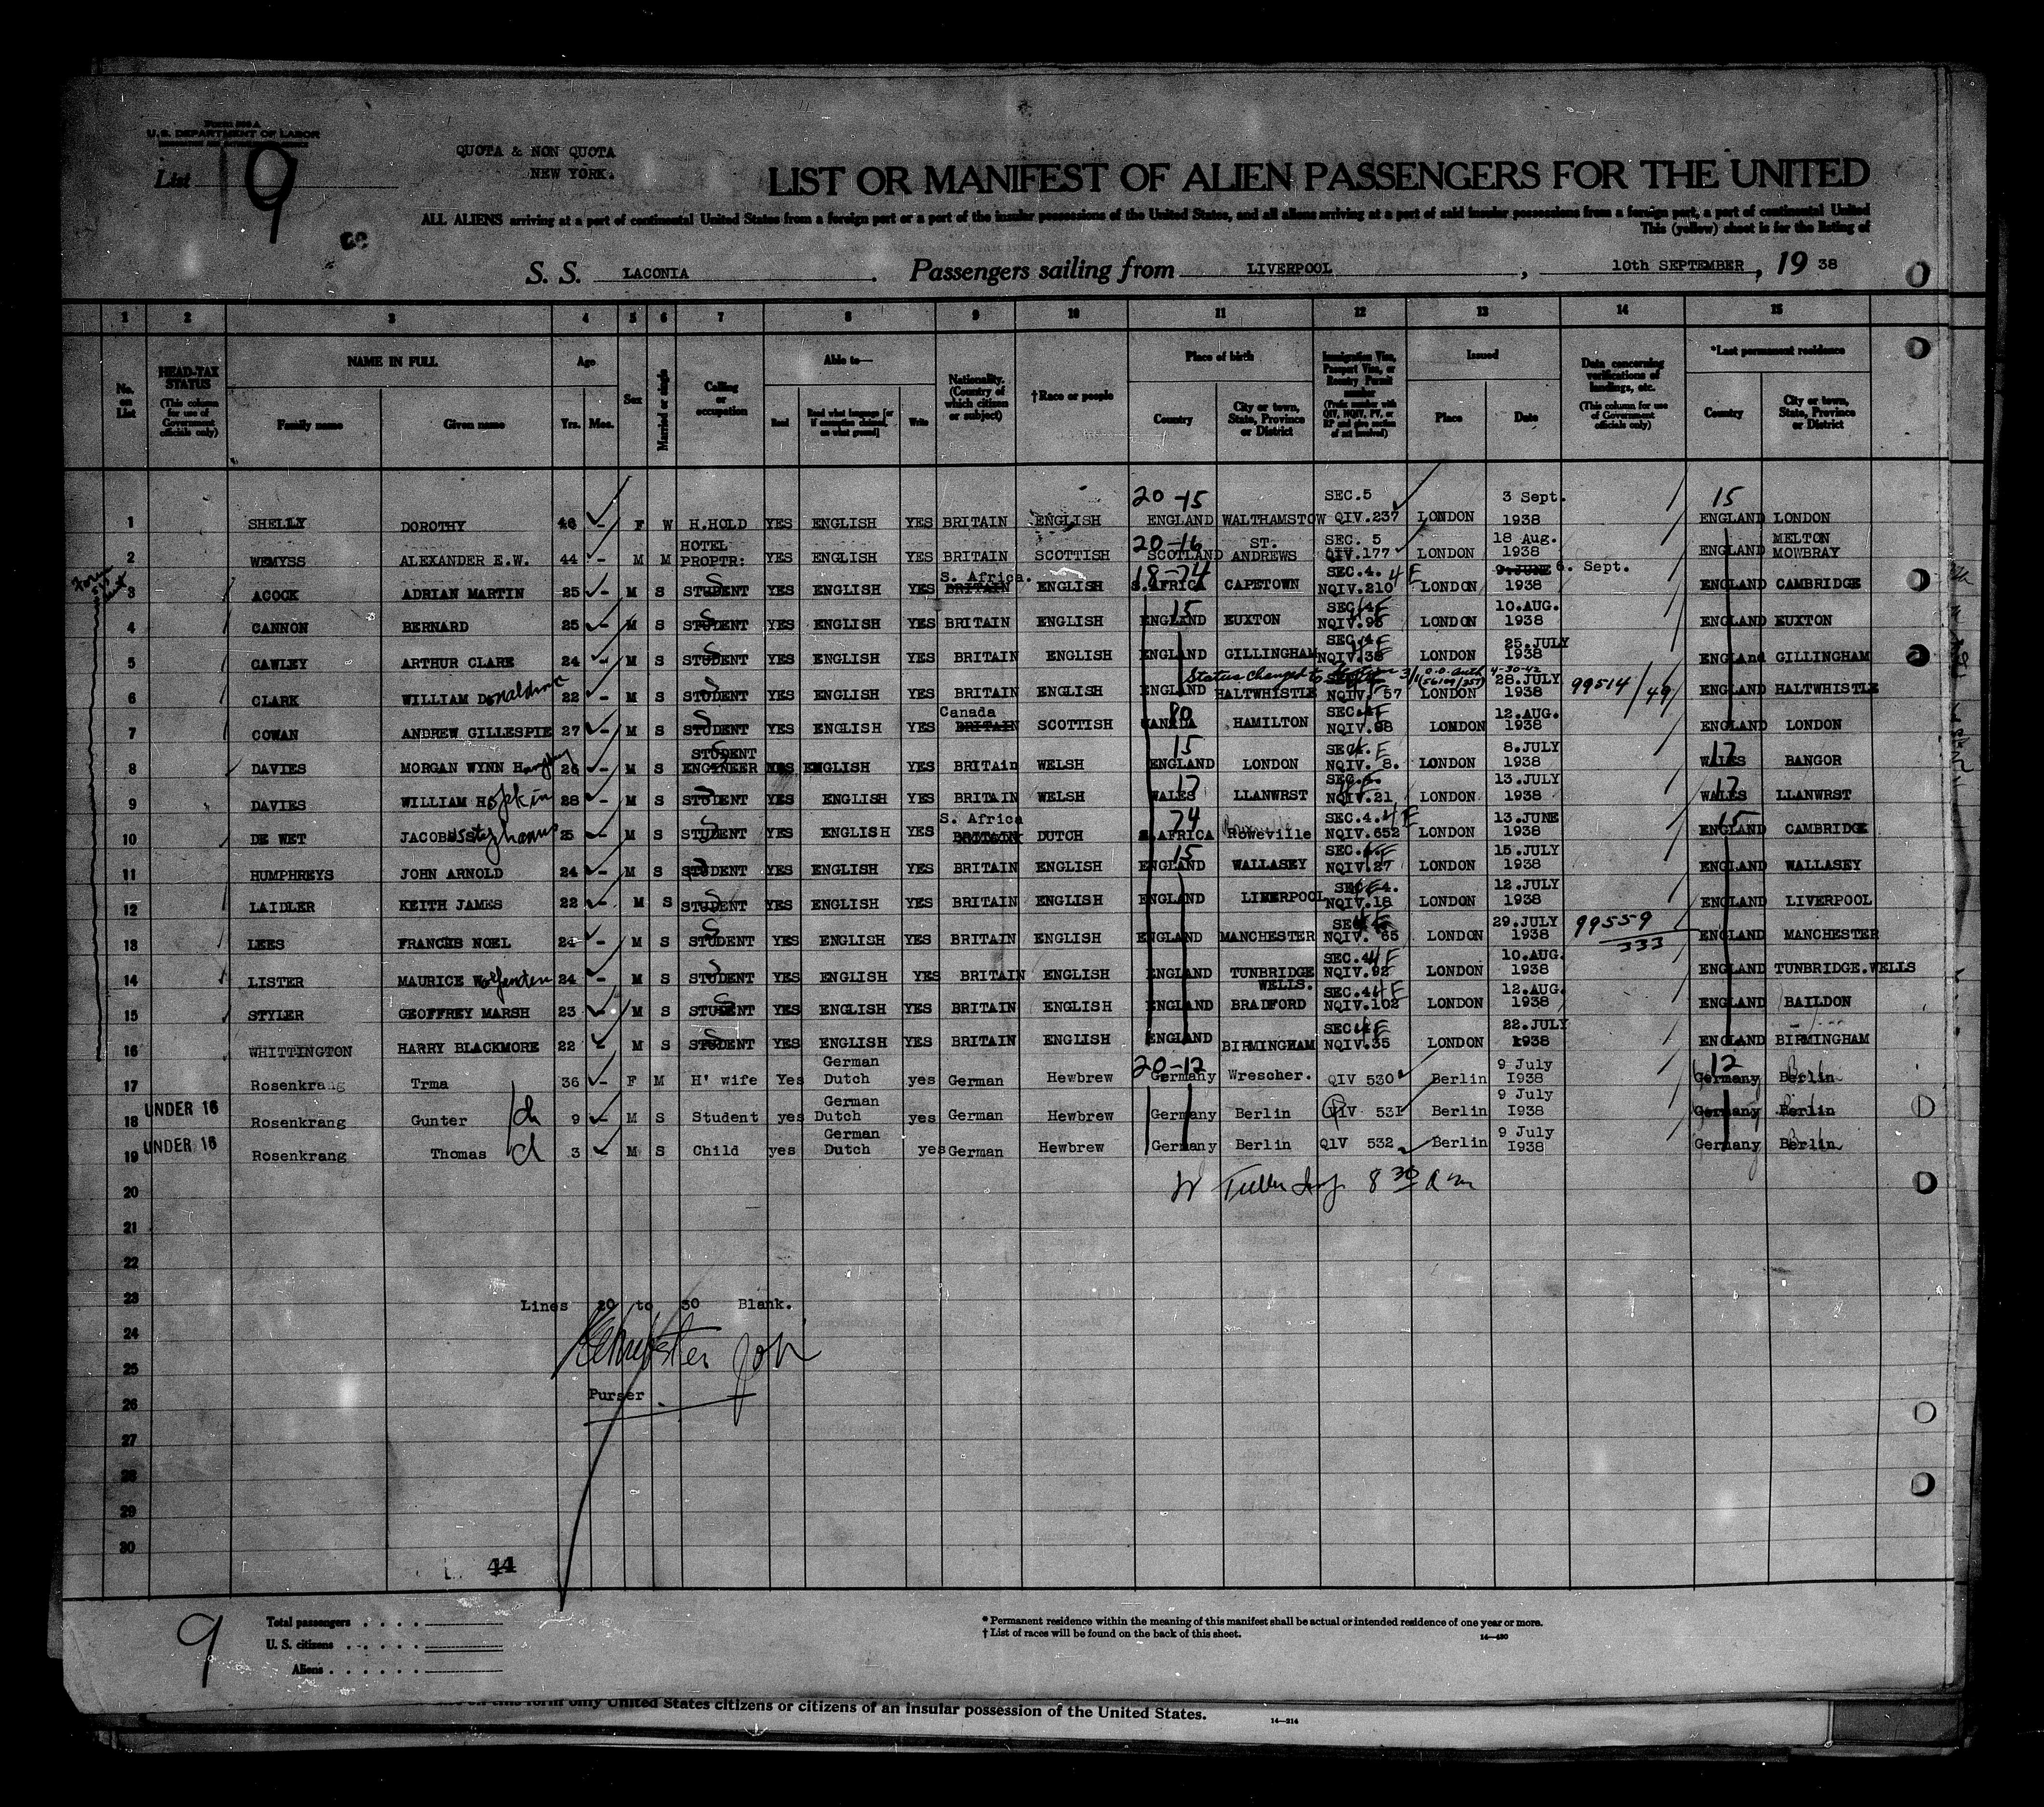 Form 500 A
U.S. DEPARTMENT OF LABOR
List 9
QUOTA & NON QUOTA
NEW YORK.
LIST OR MANIFEST OF ALIEN PASSENGERS FOR THE UNITED
ALL ALIENS arriving at a port of continental United States from a foreign port or a port of the insular possessions of the United States, and all aliens arriving at a port of said insular possessions from a foreign port, a port of continental United
This (yellow) sheet is for the listing of
S. S. LACONIA . Passengers sailing from LIVERPOOL , 10th SEPTEMBER , 19 38
1 2 3 4 5 6 7 8 9 10 11 12 13 14 15
No. on List
HEAD-TAX STATUS (This column for use of Government officials only)
NAME IN FULL Family name Given name
Age Yrs. Mos.
Sex
Married or single
Calling or occupation
Able to— Read Read what language [or if exemption claimed, on what ground] Write
Nationality. (Country of which citizen or subject)
†Race or people
Place of birth Country City or town, State, Province or District
Immigration Visa, Passport Visa, or Reentry Permit number (Prefix number with QIV, NQIV, PV, or RP and give section of act involved)
Issued Place Date
Data concerning verifications of landings, etc. (This column for use of Government officials only)
*Last permanent residence Country City or town, State, Province or District
20-15 SEC.5 3 Sept. 15
1 SHELLY DOROTHY 46 - F W H.HOLD YES ENGLISH YES BRITAIN ENGLISH ENGLAND WALTHAMSTOW QIV.237 LONDON 1938 ENGLAND LONDON
HOTEL 20-16 ST. SEC. 5 18 Aug. MELTON
2 WEMYSS ALEXANDER E.W. 44 - M M PROPTR: YES ENGLISH YES BRITAIN SCOTTISH SCOTLAND ANDREWS QIV.177 LONDON 1938 ENGLAND MOWBRAY
S. Africa. 18-74 SEC.4. 4E 9.JUNE 6. Sept.
3 ACOCK ADRIAN MARTIN 25 - M S STUDENT YES ENGLISH YES BRITAIN ENGLISH S.AFRICA CAPETOWN NQIV.210 LONDON 1938 ENGLAND CAMBRIDGE
15 SEC.4E 10.AUG.
4 CANNON BERNARD 25 - M S STUDENT YES ENGLISH YES BRITAIN ENGLISH ENGLAND EUXTON NQIV.95 LONDON 1938 ENGLAND EUXTON
SEC.4.E 25.JULY
5 CAWLEY ARTHUR CLARE 24 - M S STUDENT YES ENGLISH YES BRITAIN ENGLISH ENGLAND GILLINGHAM NQIV.38 LONDON 1938 ENGLAnd GILLINGHAM
Status changed to 4-30-42 28.JULY
6 CLARK WILLIAM Donaldson 22 - M S STUDENT YES ENGLISH YES BRITAIN ENGLISH ENGLAND HALTWHISTLE NQIV. 57 LONDON 1938 99514/49 ENGLAND HALTWHISTLE
Canada 80 SEC.4E 12.AUG.
7 COWAN ANDREW GILLESPIE 27 - M S STUDENT YES ENGLISH YES BRITAIN SCOTTISH CANADA HAMILTON NQIV.98 LONDON 1938 ENGLAND LONDON
STUDENT 15 SEC4. E 8.JULY 17
8 DAVIES MORGAN WYNN 26 - M S ENGINEER YES ENGLISH YES BRITAin WELSH ENGLAND LONDON NQIV. 8. LONDON 1938 WALES BANGOR
17 SEC.4. 13.JULY 17
9 DAVIES WILLIAM Hopkin 28 - M S STUDENT YES ENGLISH YES BRITAIN WELSH WALES LLANWRST NQIV.21 LONDON 1938 WALES LLANWRST
S. Africa 74 SEC.4.4E 13.JUNE 15
10 DE WET JACOBUS Stephanus 25 - M S STUDENT YES ENGLISH YES BRITAIN DUTCH S.AFRICA Roweville NQIV.652 LONDON 1938 ENGLAND CAMBRIDGE
15 SEC.4E 15.JULY
11 HUMPHREYS JOHN ARNOLD 24 - M S STUDENT YES ENGLISH YES BRITAIN ENGLISH ENGLAND WALLASEY NQIV.27 LONDON 1938 ENGLAND WALLASEY
SEC 4. 12.JULY
12 LAIDLER KEITH JAMES 22 - M S STUDENT YES ENGLISH YES BRITAIN ENGLISH ENGLAND LIVERPOOL NQIV.18 LONDON 1938 ENGLAND LIVERPOOL
SEC 4E 29.JULY
13 LEES FRANCIS NOEL 24 - M S STUDENT YES ENGLISH YES BRITAIN ENGLISH ENGLAND MANCHESTER NQIV. 65 LONDON 1938 99559/333 ENGLAND MANCHESTER
SEC.44E 10.AUG.
14 LISTER MAURICE Wolfenden 24 - M S STUDENT YES ENGLISH YES BRITAIN ENGLISH ENGLAND TUNBRIDGE WELLS. NQIV.92 LONDON 1938 ENGLAND TUNBRIDGE.WELLS
SEC.44E 12.AUG.
15 STYLER GEOFFREY MARSH 23 - M S STUDENT YES ENGLISH YES BRITAIN ENGLISH ENGLAND BRADFORD NQIV.102 LONDON 1938 ENGLAND BAILDON
SEC4E 22.JULY
16 WHITTINGTON HARRY BLACKMORE 22 - M S STUDENT YES ENGLISH YES BRITAIN ENGLISH ENGLAND BIRMINGHAM NQIV.35 LONDON 1938 ENGLAND BIRMINGHAM
German 20-12 9 July 12
17 Rosenkrang Trma 36 - F M H' wife Yes Dutch yes German Hewbrew Germany Wrescher. QIV 530 Berlin I938 Germany Berlin
UNDER 16 German 9 July
18 Rosenkrang Gunter ch 9 - M S Student yes Dutch yes German Hewbrew Germany Berlin QIV 53I Berlin I938 Germany Berlin
UNDER 16 German 9 July
19 Rosenkrang Thomas d 3 M S Child yes Dutch yes German Hewbrew Germany Berlin QIV 532 Berlin I938 Germany Berlin
20 8 30 a m
21
22
23 Lines 20 to 30 Blank.
24
25
26 Purser.
27
28
29
30
44
9
Total passengers
U. S. citizens
Aliens
* Permanent residence within the meaning of this manifest shall be actual or intended residence of one year or more.
† List of races will be found on the back of this sheet.
14—430
on this form only United States citizens or citizens of an insular possession of the United States.
14—214